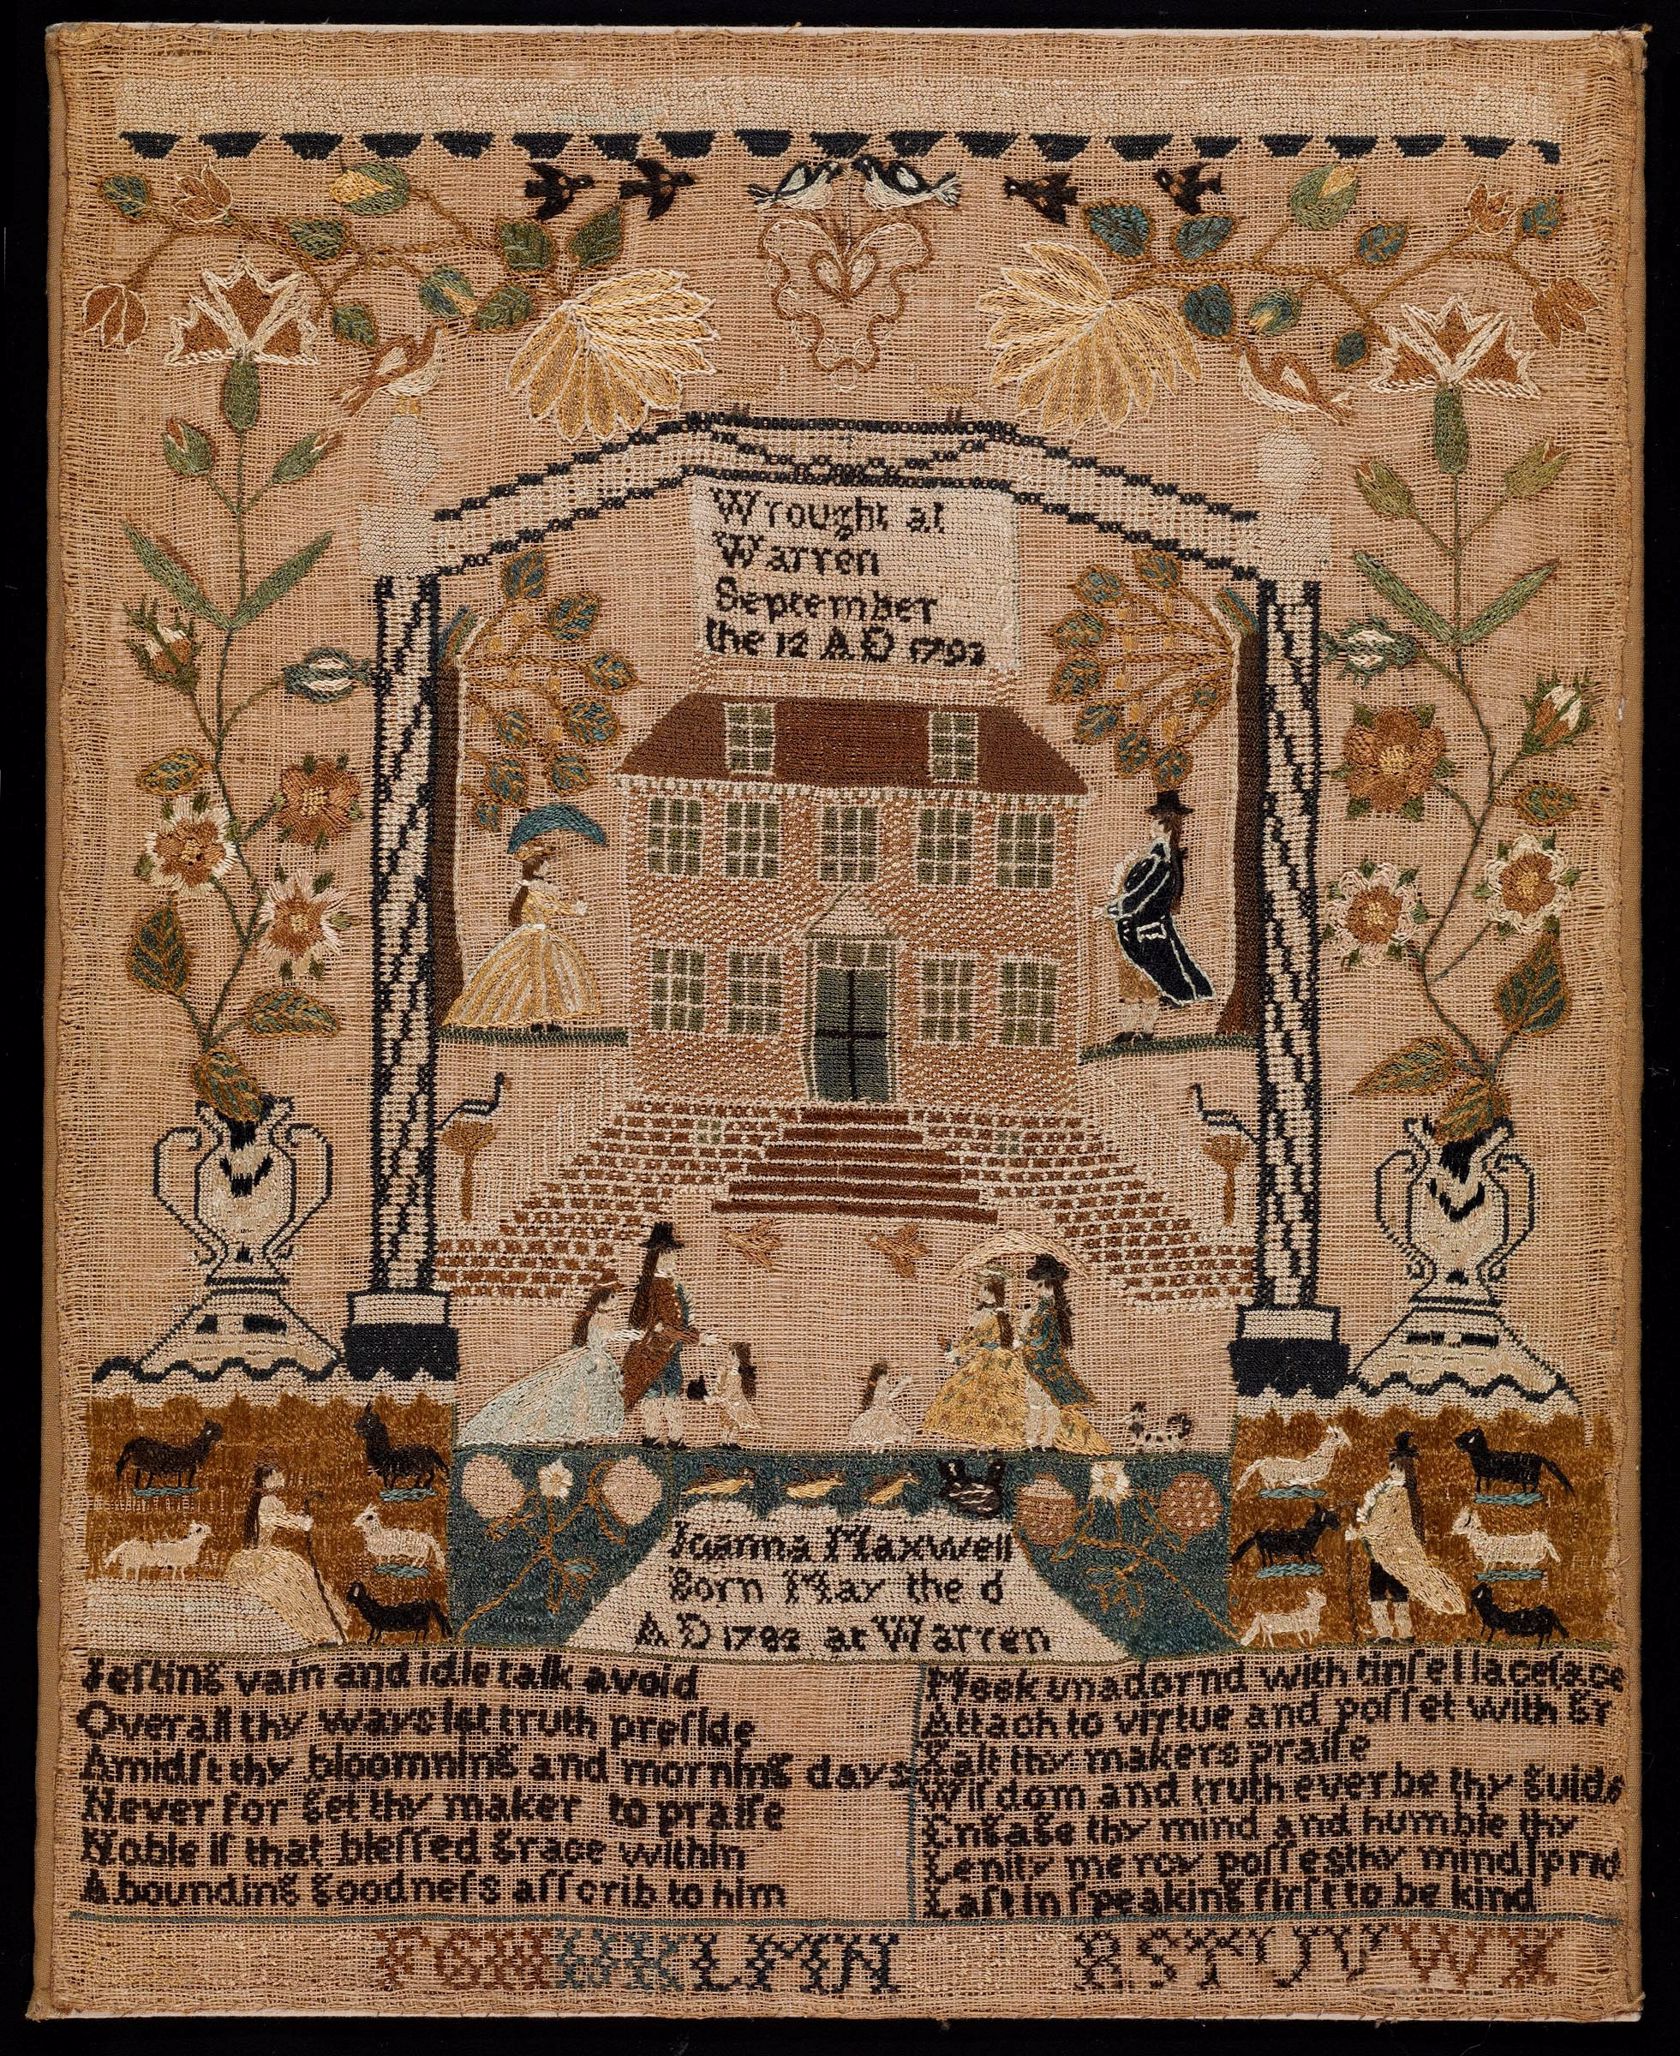 Wrought at
Warren
September
the 12 A D 1793
Joanna Maxwell
Born May the 6
A D 1782 at Warren
Jeſting vain and idle talk avoid
Over all thy ways let truth preſide
Amidſt thy bloomning and morning days
Never for get thy maker to praiſe
Noble iſ that bleſſed grace within
Abounding goodneſs aſſcrib to him
Meek unadornd with tinſel laceſace
Attach to virtue and poſſet with gr
Xalt thy makers praiſe
Wiſdom and truth ever be thy guide
Engage thy mind and humble thy
Lenity mercy poſſesthy mind ſprid
Laſt in ſpeaking firſt to be kind
F G H I J K L M N R S T U V W X